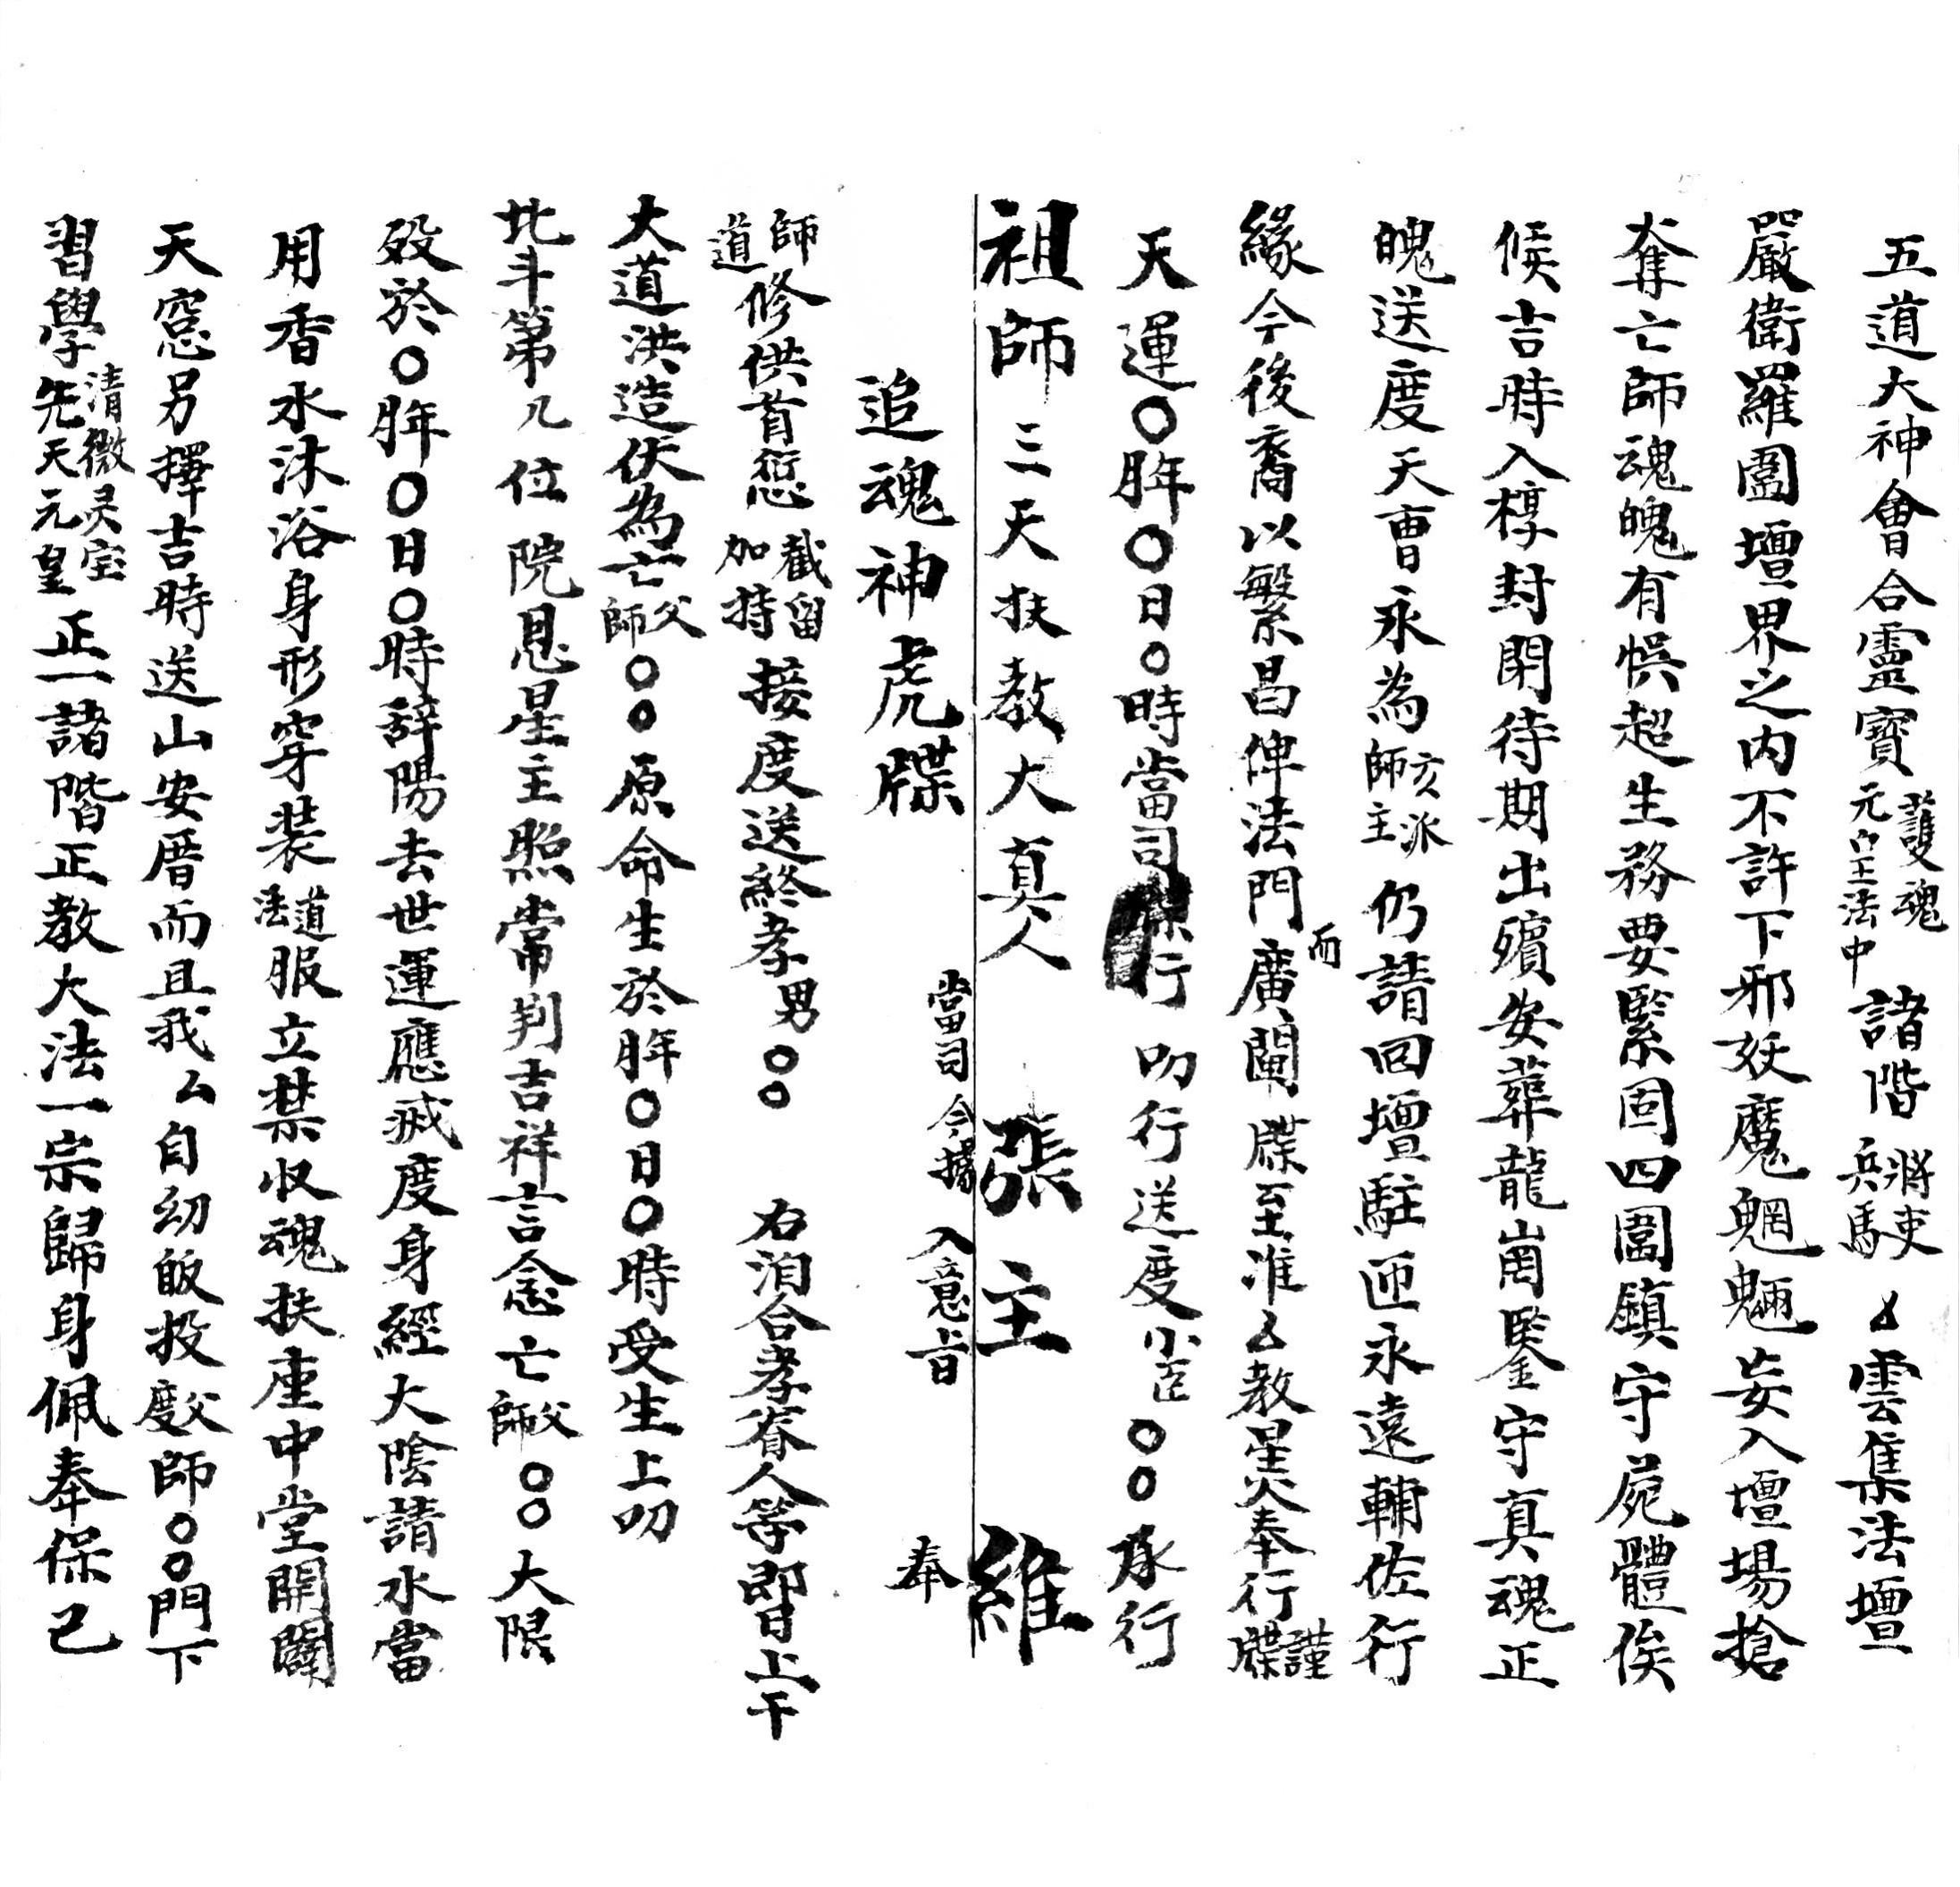 五道大神會合靈寶護魂元皇法中諸階將吏兵馬厶雲集法壇
嚴衛羅圍壇界之内不許下邪妖魔魍魎妄入壇場搶
奪亡師魂魄有悞超生務要緊固四圍鎮守屍體俟
候吉時入槨封閉待期出殯安葬龍崗鑒守真魂正
魄送度天曹永為亥派師主仍請回壇駐迊永遠輔佐行
緣今後裔以繁昌俾法門而廣闡牒至准厶教星火奉行謹牒
天運〇年〇日〇時當司牒行叩行送度小臣〇〇承行
祖師三天扶教大真人 張 主 維
追魂神虎牒 當司今據入意旨 奉
師道修供首愆截留加持接度送終孝男〇〇 右洎合孝眷人等即日上干
大道洪造伏為亡父師〇〇原命生於年〇日〇時受生上叩
北斗第几位院恩星主照常判吉祥言念亡父師〇〇大限
殁於〇年〇日〇時辞陽去世運應滅度身經大陰請水當
用香水沐浴身形穿装道法服立禁收魂扶座中堂開闢
天窓另擇吉時送山安厝而且我厶自幼皈投度父師〇〇門下
習學清微灵宝先天元皇正一諸階正教大法一宗歸身佩奉保己